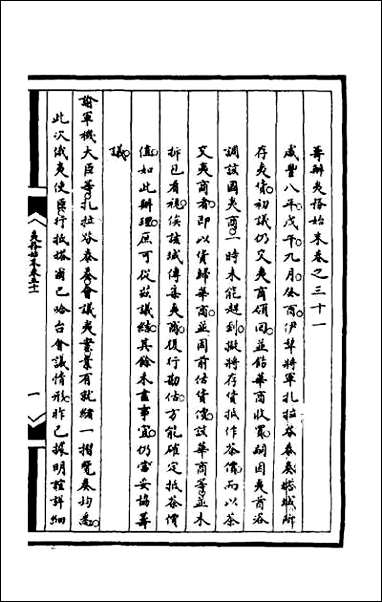 籌辦夷務始末卷之三十一
咸豐八年戊午九月癸酉伊犂將軍扎拉芬泰奏塔城所
存夷貨初議仍交夷商領回並飭華商收買嗣因夷酋洛
調該國夷商一時未能趕到擬將存貨抵作茶價而以茶
交夷商者即以貨歸華商並因前估貨價該華商等並未
拆包看視俟該城傳集夷商復行勘估方能確定抵茶價
值如此辦理庶可從茲議結其餘未盡事宜仍當妥協籌
議
諭軍機大臣等扎拉芬泰奏會議夷案業有就緒一摺覽奏均悉
此次俄夷使臣行抵塔爾巴哈台會議情形昨已據明誼詳細
夷務始末卷三十一
一